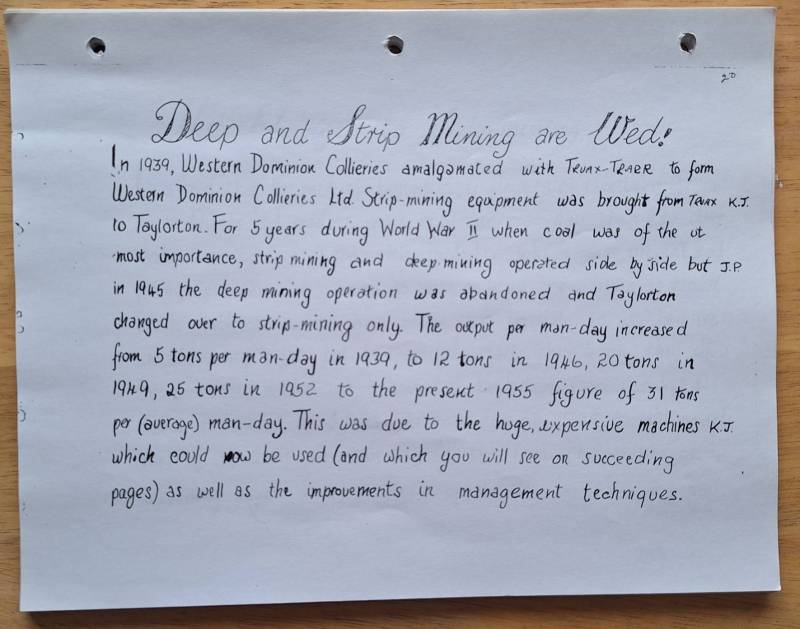 20
Deep and Strip Mining are Wed!
In 1939, Western Dominion Collieries amalgamated with TRUAX-TRAER to form
Western Dominion Collieries Ltd. Strip-mining equipment was brought from TRUAX K.J.
to Taylorton. For 5 years during World War II when coal was of the ut
most importance, strip mining and deep-mining operated side by side but J.P.
in 1945 the deep mining operation was abandoned and Taylorton
changed over to strip-mining only. The output per man-day increased
from 5 tons per man-day in 1939, to 12 tons in 1946, 20 tons in
1949, 25 tons in 1952 to the present 1955 figure of 31 tons
per (average) man-day. This was due to the huge, expensive machines K.J.
which could now be used (and which you will see on succeeding
pages) as well as the improvements in management techniques.